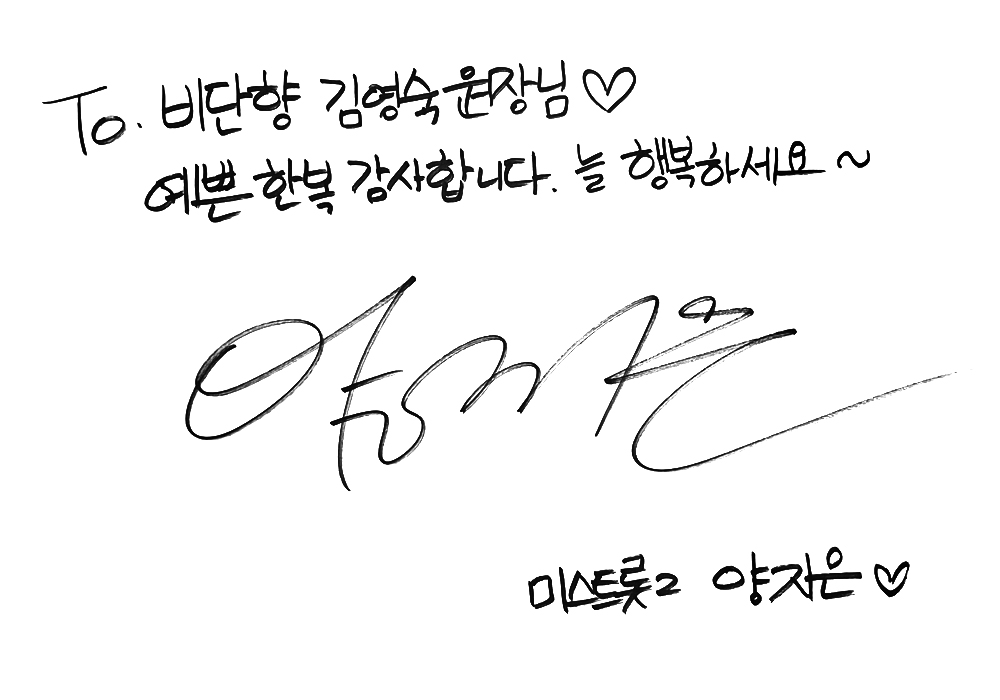 To. 비단향 김영숙 원장님♡
예쁜 한복 감사합니다. 늘 행복하세요~
양지은
미스트롯2 양지은♡